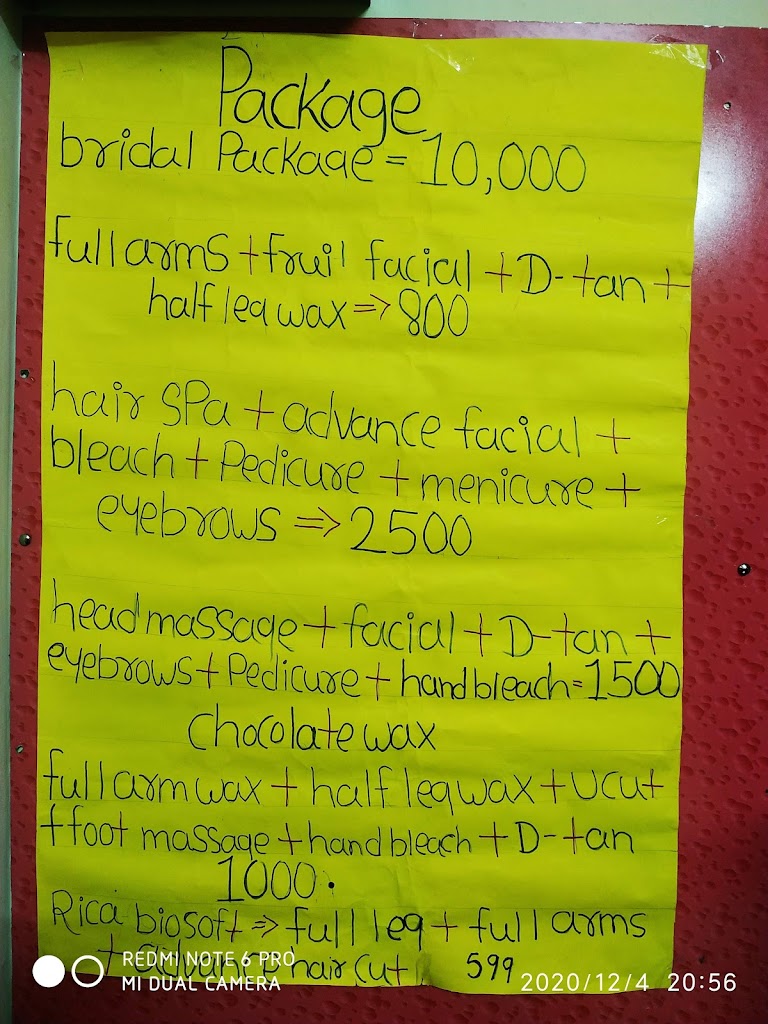 Package
bridal Package = 10,000
full arms + fruit facial + D-tan +
half leg wax => 800
hair SPa + advance facial +
bleach + Pedicure + menicure +
eyebrows => 2500
head massage + facial + D-tan +
eyebrows + Pedicure + hand bleach = 1500
Chocolate wax
full arm wax + half leg wax + U cut
+ foot massage + hand bleach + D-tan
1000.
Rica biosoft => full leg + full arms
+ advance hair cut 599
REDMI NOTE 6 PRO
MI DUAL CAMERA
2020/12/4 20:56